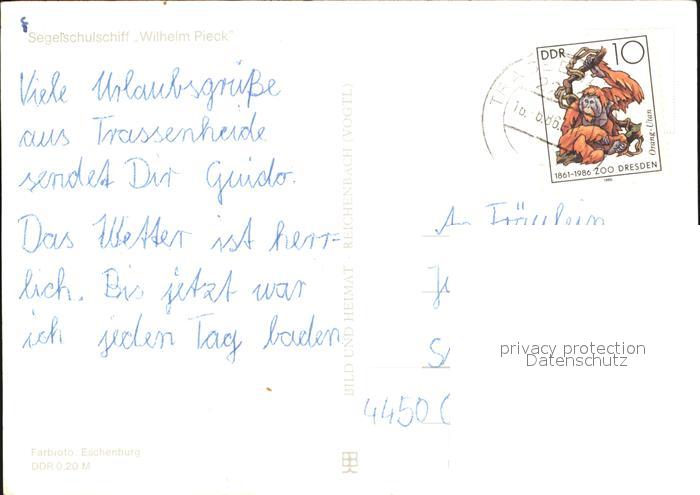 Segelschulschiff „Wilhelm Pieck"
Viele Urlaubsgrüße
aus Trassenheide
sendet Dir Guido.
Das Wetter ist herr-
lich. Bis jetzt war
ich jeden Tag baden
Farbfoto: Eschenburg
DDR 0,20 M
BILD UND HEIMAT · REICHENBACH (VOGTL)
DDR 10
Orang-Utan
1861-1986 ZOO DRESDEN
1986
An Fräulein
4450
privacy protection
Datenschutz